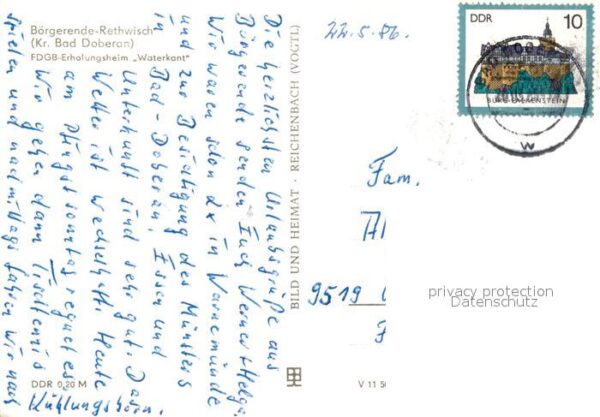 Börgerende-Rethwisch
(Kr. Bad Doberan)
FDGB-Erholungsheim „Waterkant"
22.5.86.
DDR
10
BURG FALKENSTEIN
W
Die herzlichsten Urlaubsgrüße aus
Börgerende senden Euch Werner + Helga.
Wir waren schon 2x in Warnemünde
und zur Besichtigung des Münsters
in Bad-Doberan. Essen und
Unterkunft sind sehr gut. Das
Wetter ist wechselhaft. Heute
am Pfingstsonntag regnet es.
Wir gehen dann Tischtennis
spielen und nachmittags fahren wir nach
Kühlungsborn.
BILD UND HEIMAT · REICHENBACH (VOGTL)
Fam.
9519
privacy protection
Datenschutz
DDR 0,20 M
V 11 50